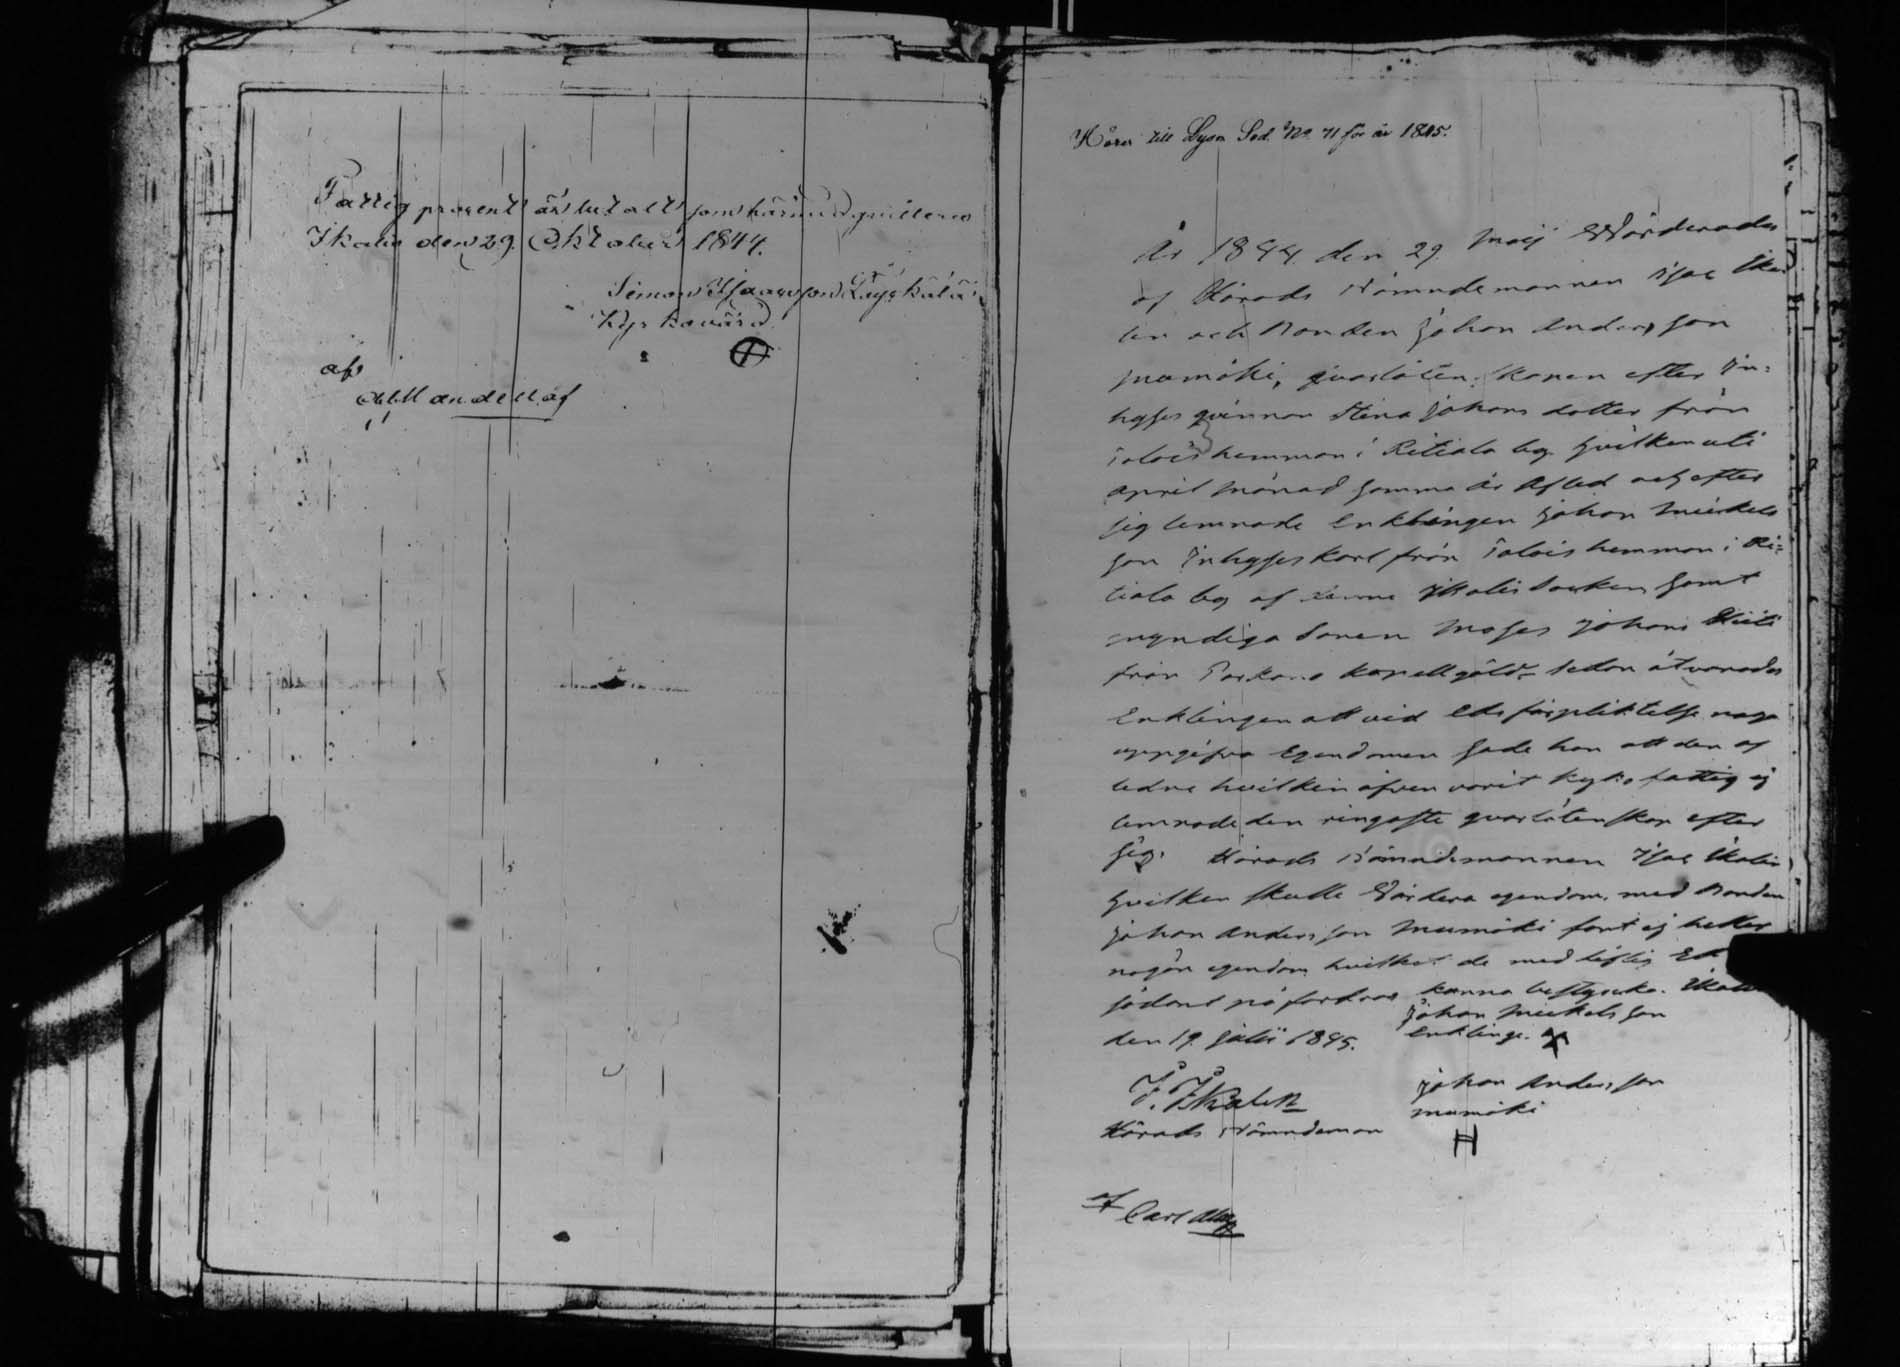 Fattig procent är betalt som härmed qvitteras
Ikalis den 29. Oktober 1844.
Simon Isaacsson Läykälä
Kyrkovärd
af
Hörer till Lysn. Sed. No 71 för år 1845.
År 1844. den 29 Maij Wärderades
af Härads Nämndemannen Isac Ikal
len och Bonden Johan Andersson
mumäki, qvarlåtenskapen efter In-
hyses qvinnan Stina Johans dotter från
Talois hemman i Ritiala by hvilken uti
april månad samma År Afled och efter
sig lemnade Enklingen Johan Mickels
son Inhyseskarl från Talois hemman i Ri-
tiala by af denne Ikalis Socken samt
myndiga Sonen Moses Johans
från Parkano kapellgäld. sedan åtvarnades
Enklingen att vid Eds förpliktelse noga
uppgifva Egendomen sade han att den af
ledne hvilken äfven varit kyrko fattig ej
lemnade den ringaste qvarlåtenskap efter
sig. Härads Nämndemannen Isac Ikalen
hvilken skulle Värdera egendom, med Bonden
Johan Andersson Mumäki fant ej heller
någon egendom hvilket de med liflig Ed
sådant påfordras kunna bestyrcka. Ikalis
den 19. Julii 1845.
Johan Mickelsson
Enkling.
I. Ikalen
Härads Nämndeman
Johan Andersson
mumäki
H
af
Carl